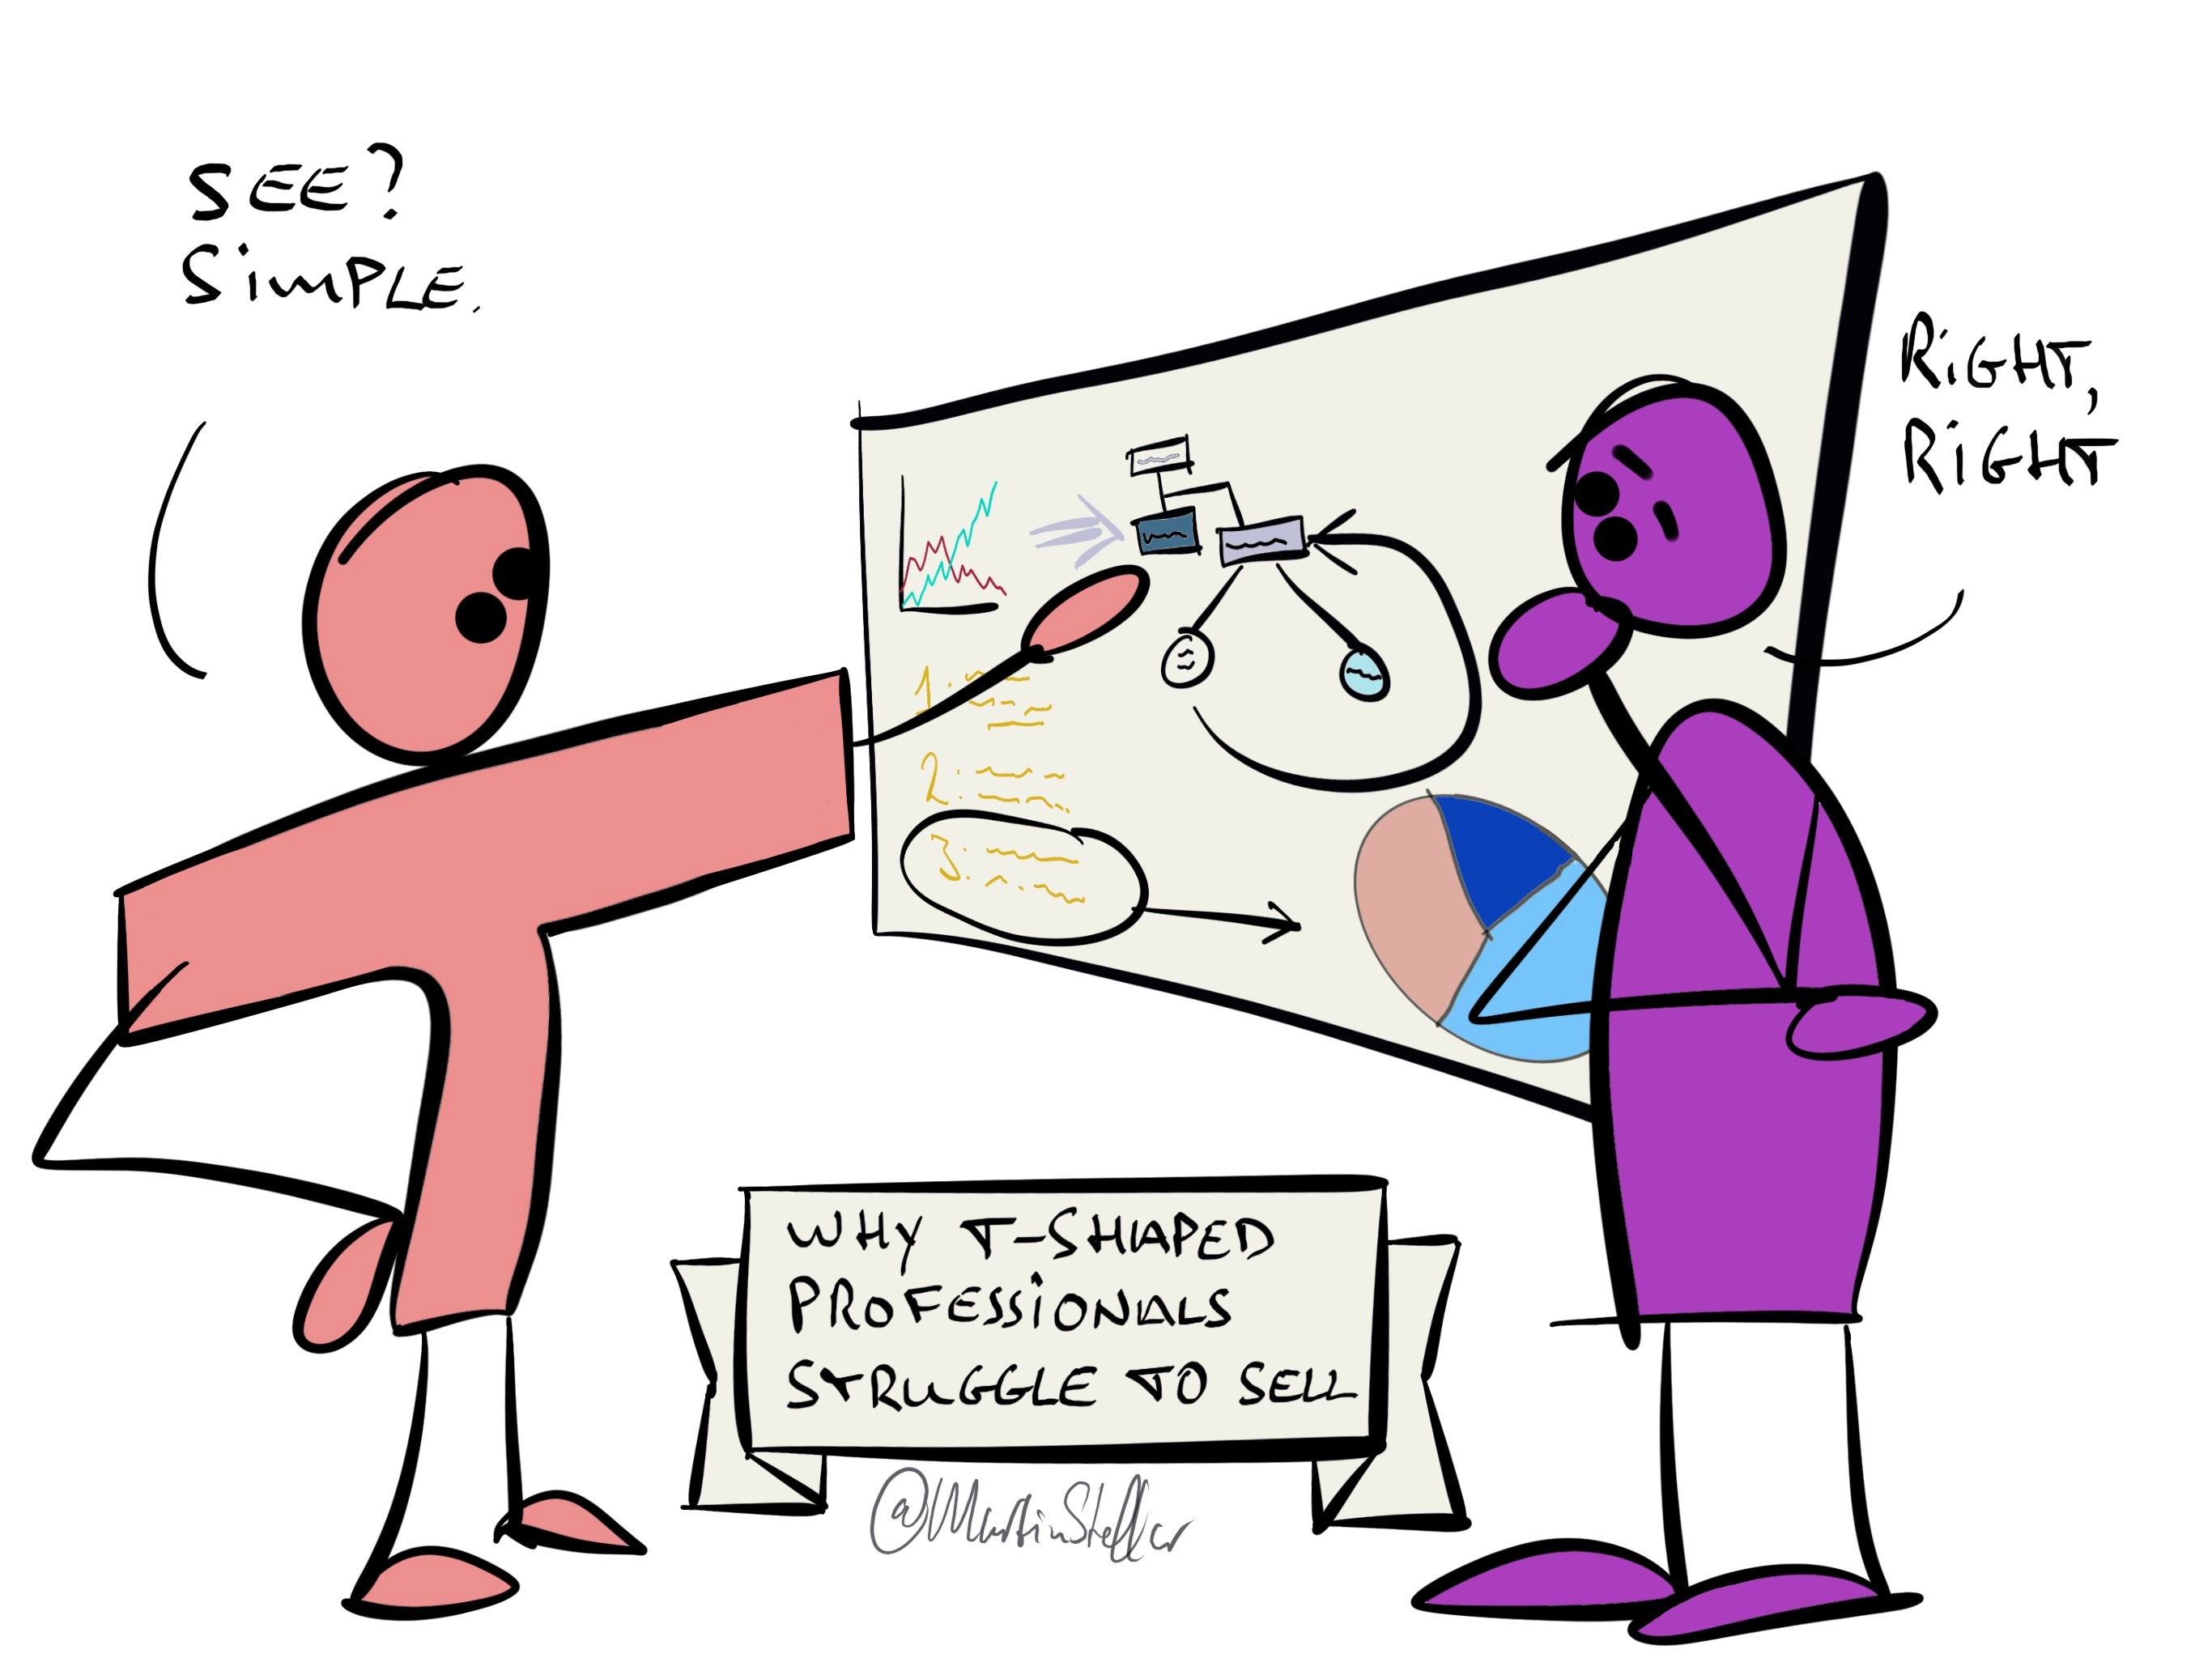 SEE?
SiMPLE.
RiGHT,
RiGHT
1:
2:
3:
WHY T-SHAPED
PROFESSiONALS
STRUGGLE TO SELL
@MartinStellar